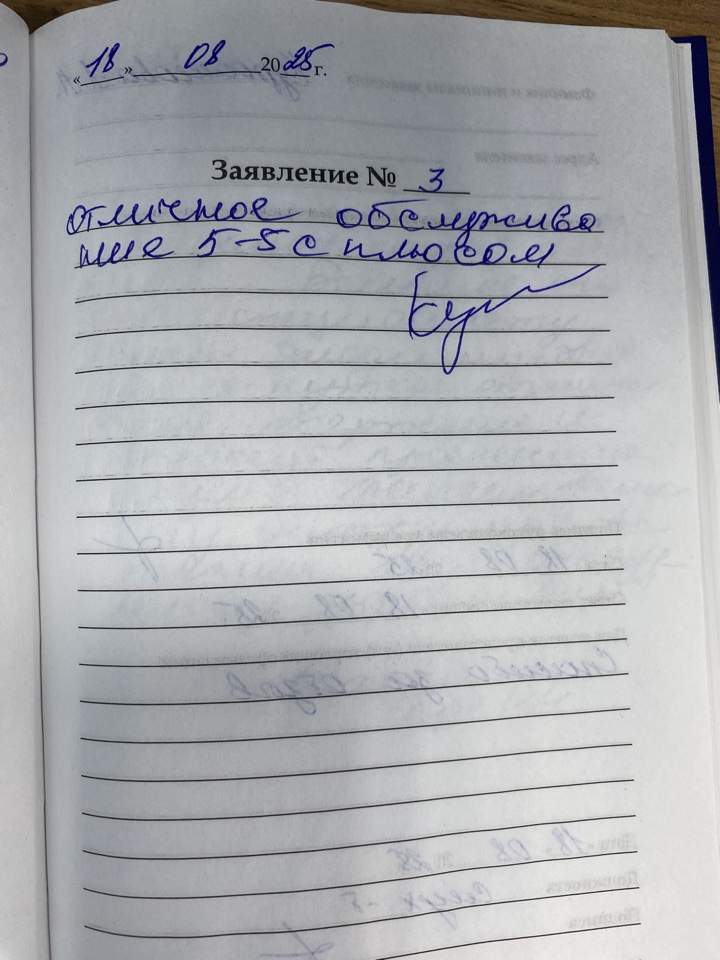 «18» 08 2025 г.
Заявление № 3
отличное обслужива
ние 5-5 с плюсом